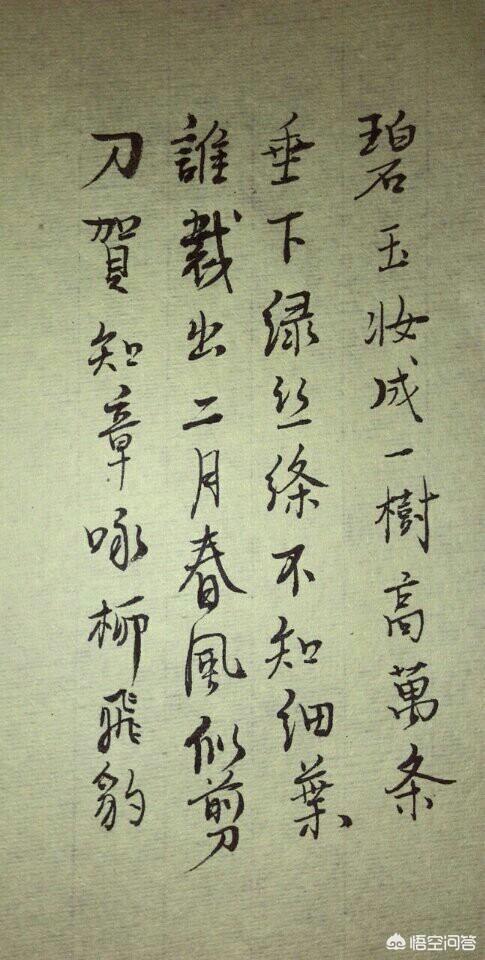 碧玉妆成一樹高萬条
垂下绿丝绦不知细葉
誰裁出二月春风似剪
刀賀知章咏柳飛豹
悟空问答